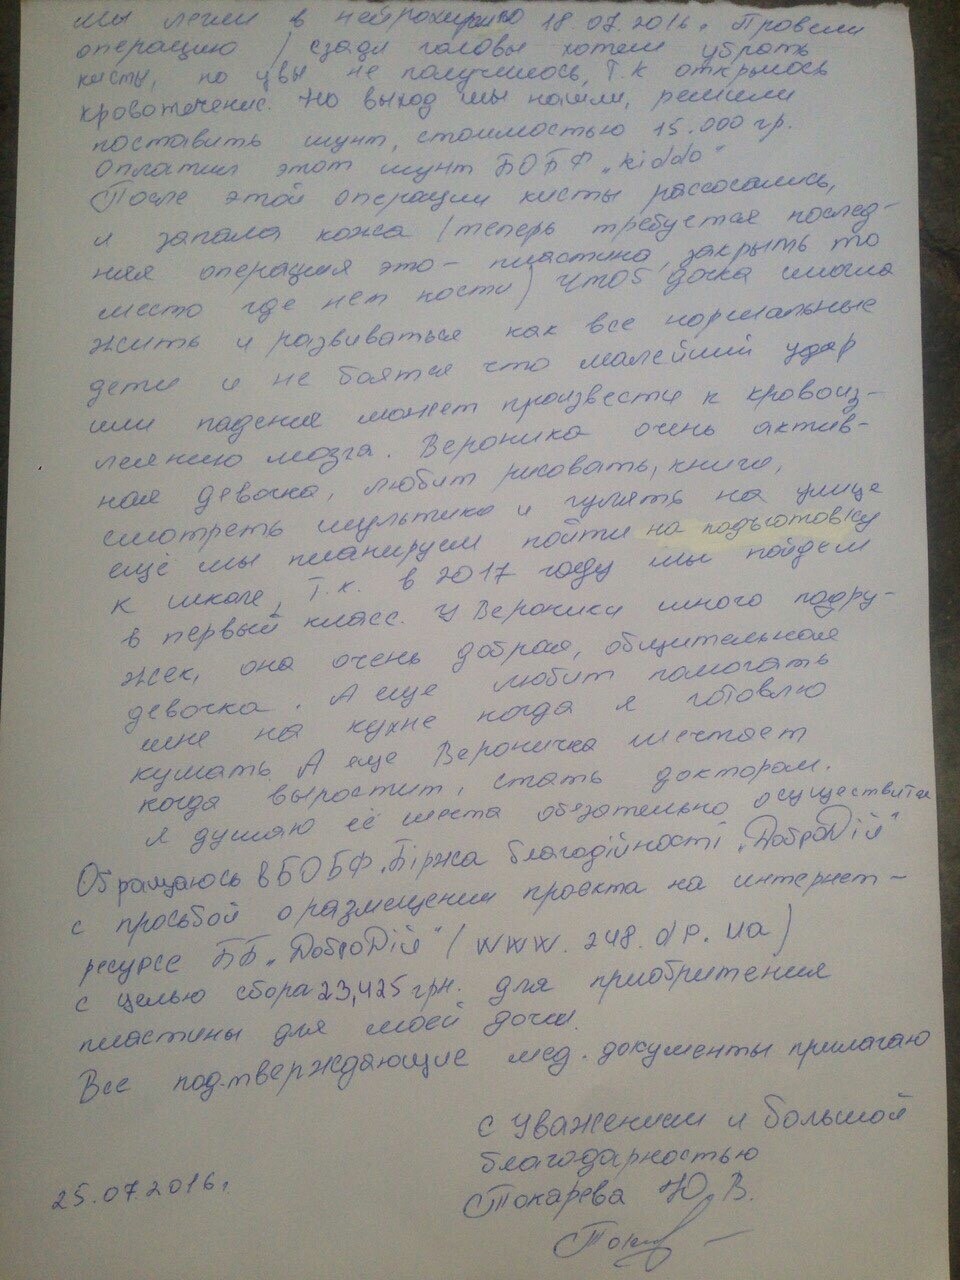 мы легли в нейрохирургию 18.07.2016. Провели
операцию (сзади головы хотели убрать
кисты, но увы не получилось, т.к открылось
кровотечение. Но выход мы нашли, решили
поставить шунт, стоимостью 15.000 гр.
Оплатил этот шунт БОБФ „Kiddo"
После этой операции кисты рассосались,
и запала кожа (теперь требуется послед-
няя операция это – пластина, закрыть то
место где нет кости) Чтоб дочка смогла
жить и развиваться как все нормальные
дети и не боятся что малейший удар
или падения может произвести к кровоиз-
леянию мозга. Вероника очень актив-
ная девочка, любит рисовать, книги,
смотреть мультики и гулять на улице
ещё мы планируем пойти на подготовку
к школе, т.к. в 2017 году мы пойдем
в первый класс. У Вероники много подру-
жек, она очень добрая, общительная
девочка. А еще любит помогать
мне на кухне когда я готовлю
кушать. А еще Вероничка мечтает
когда выростит, стать доктором.
Я думаю её мечта обязательно осуществится
Обращаюсь в БОБФ „Біржа благодійності „ДоброДій"
с просьбой о размещении проекта на интернет-
ресурсе ББ „ДоброДій" (www.248.dp.ua)
с целью сбора 23,425 грн. для приобритения
пластины для моей дочки.
Все подтверждающие мед. документы прилагаю
с Уважением и большой
благодарностью
25.07.2016. Токарева Ю.В.